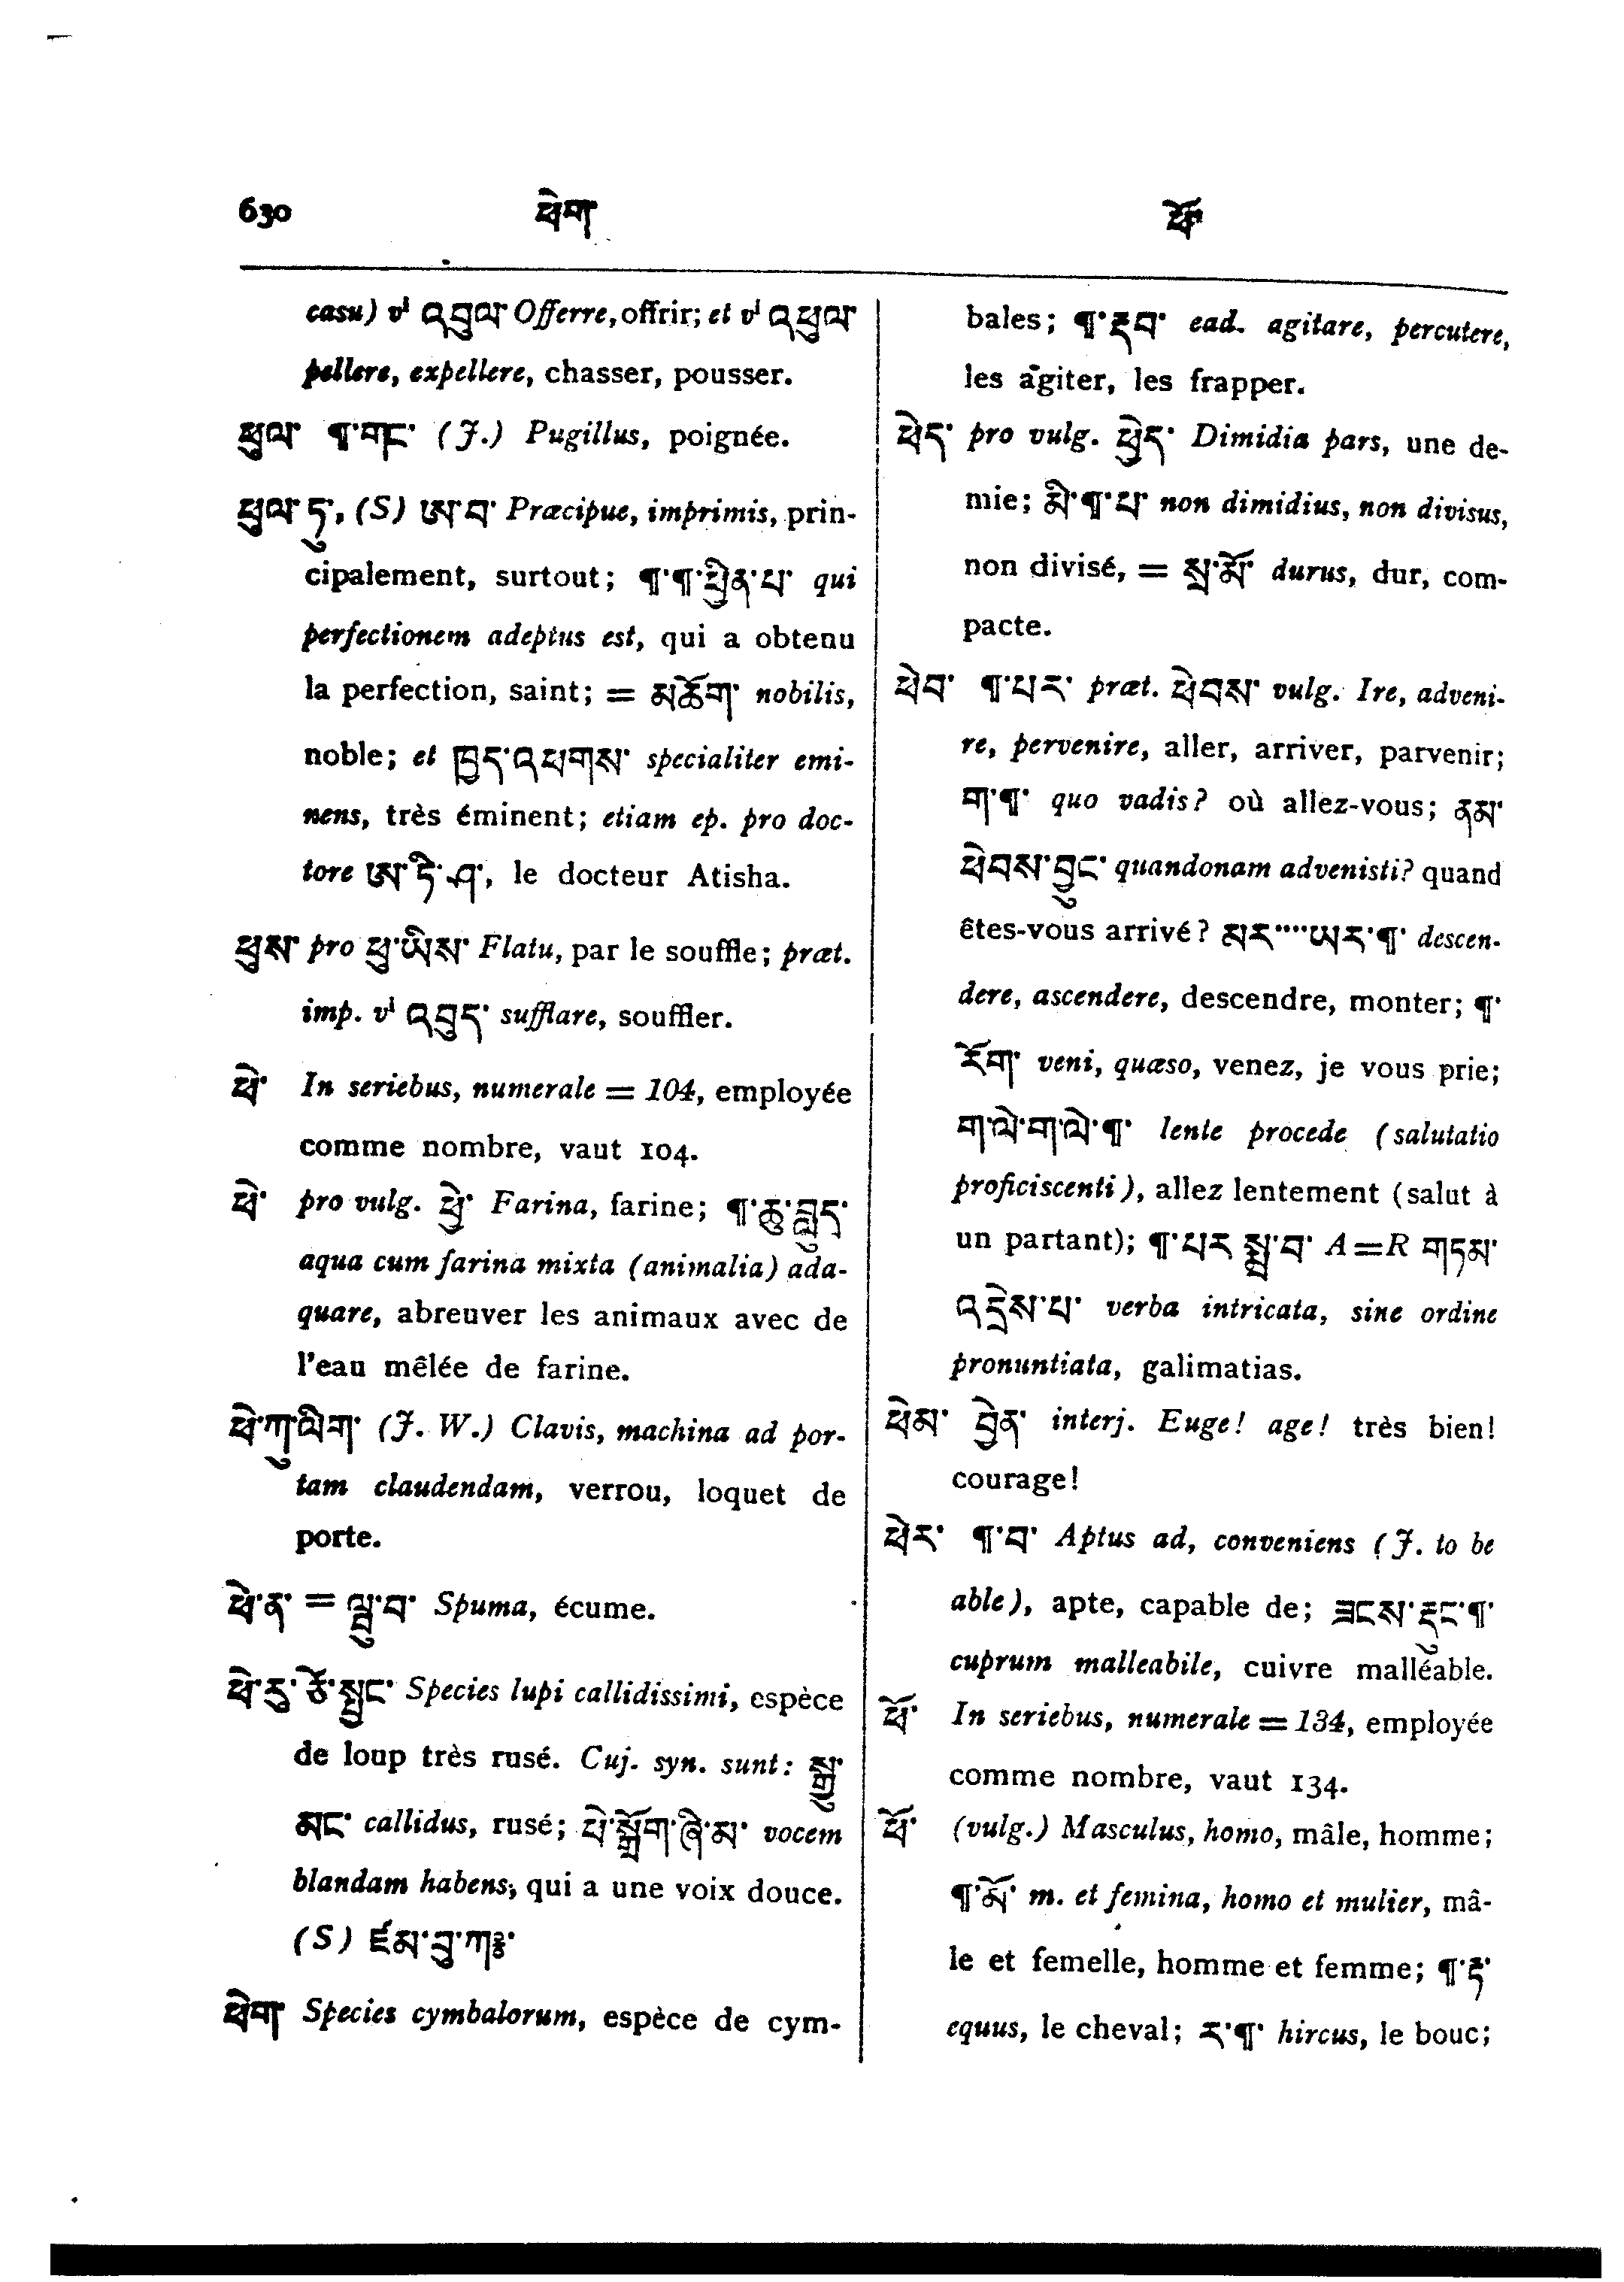 630 ཕེག ཕོ
casu) vˡ འབུལ Offerre, offrir; et vˡ འཕུལ
pellere, expellere, chasser, pousser.
ཕུལ་ ¶་གང་ (J.) Pugillus, poignée.
ཕུལ་ཏུ, (S) ཨ་བ་ Præcipue, imprimis, prin-
cipalement, surtout; ¶་¶་ཕྱིན་པ་ qui
perfectionem adeptus est, qui a obtenu
la perfection, saint; = མཆོག་ nobilis,
noble; et ཁྱད་འཕགས་ specialiter emi-
nens, très éminent; etiam ep. pro doc-
tore ཨ་ཏི་ཤ་, le docteur Atisha.
ཕུས་ pro ཕུ་ཡིས་ Flatu, par le souffle; præt.
imp. vˡ འབུད་ sufflare, souffler.
ཕེ་ In seriebus, numerale = 104, employée
comme nombre, vaut 104.
ཕེ་ pro vulg. ཕྱེ་ Farina, farine; ¶་ཆུ་བླུད་
aqua cum farina mixta (animalia) ada-
quare, abreuver les animaux avec de
l'eau mêlée de farine.
ཕེ་ཀུ་ལིག་ (J. W.) Clavis, machina ad por-
tam claudendam, verrou, loquet de
porte.
ཕེ་ན་ = ལྦུ་བ་ Spuma, écume.
ཕེ་རུ་ཙེ་སྤྱང་ Species lupi callidissimi, espèce
de loup très rusé. Cuj. syn. sunt: སྒྱུ་
མང་ callidus, rusé; པེ་སྒྲོག་ཞི་མ་ vocem
blandam habens, qui a une voix douce.
(S) ཛམ་བུ་ཀཿ
ཕེག Species cymbalorum, espèce de cym-
bales; ¶་རྡབ་ ead. agitare, percutere,
les agiter, les frapper.
ཕེད་ pro vulg. ཕྱེད་ Dimidia pars, une de-
mie; མི་¶་པ་ non dimidius, non divisus,
non divisé, = སྲ་མོ་ durus, dur, com-
pacte.
ཕེབ་ ¶་པར་ præt. ཕེབས་ vulg. Ire, adveni-
re, pervenire, aller, arriver, parvenir;
ག་¶་ quo vadis? où allez-vous; ནམ་
ཕེབས་བྱུང་ quandonam advenisti? quand
êtes-vous arrivé? མར་····ཡར་¶་ descen-
dere, ascendere, descendre, monter; ¶་
རོག་ veni, quæso, venez, je vous prie;
ག་ལེ་ག་ལེ་¶་ lente procede (salutatio
proficiscenti), allez lentement (salut à
un partant); ¶་པར་སྨྲ་བ་ A=R གཏམ་
འདྲེས་པ་ verba intricata, sine ordine
pronuntiata, galimatias.
ཕེམ་ བྱེན་ interj. Euge! age! très bien!
courage!
ཕེར་ ¶་བ་ Aptus ad, conveniens (J. to be
able), apte, capable de; ཟངས་རྡུང་¶་
cuprum malleabile, cuivre malléable.
ཕོ་ In seriebus, numerale = 134, employée
comme nombre, vaut 134.
ཕོ་ (vulg.) Masculus, homo, mâle, homme;
¶་མོ་ m. et femina, homo et mulier, mâ-
le et femelle, homme et femme; ¶་རྟ་
equus, le cheval; ར་¶་ hircus, le bouc;